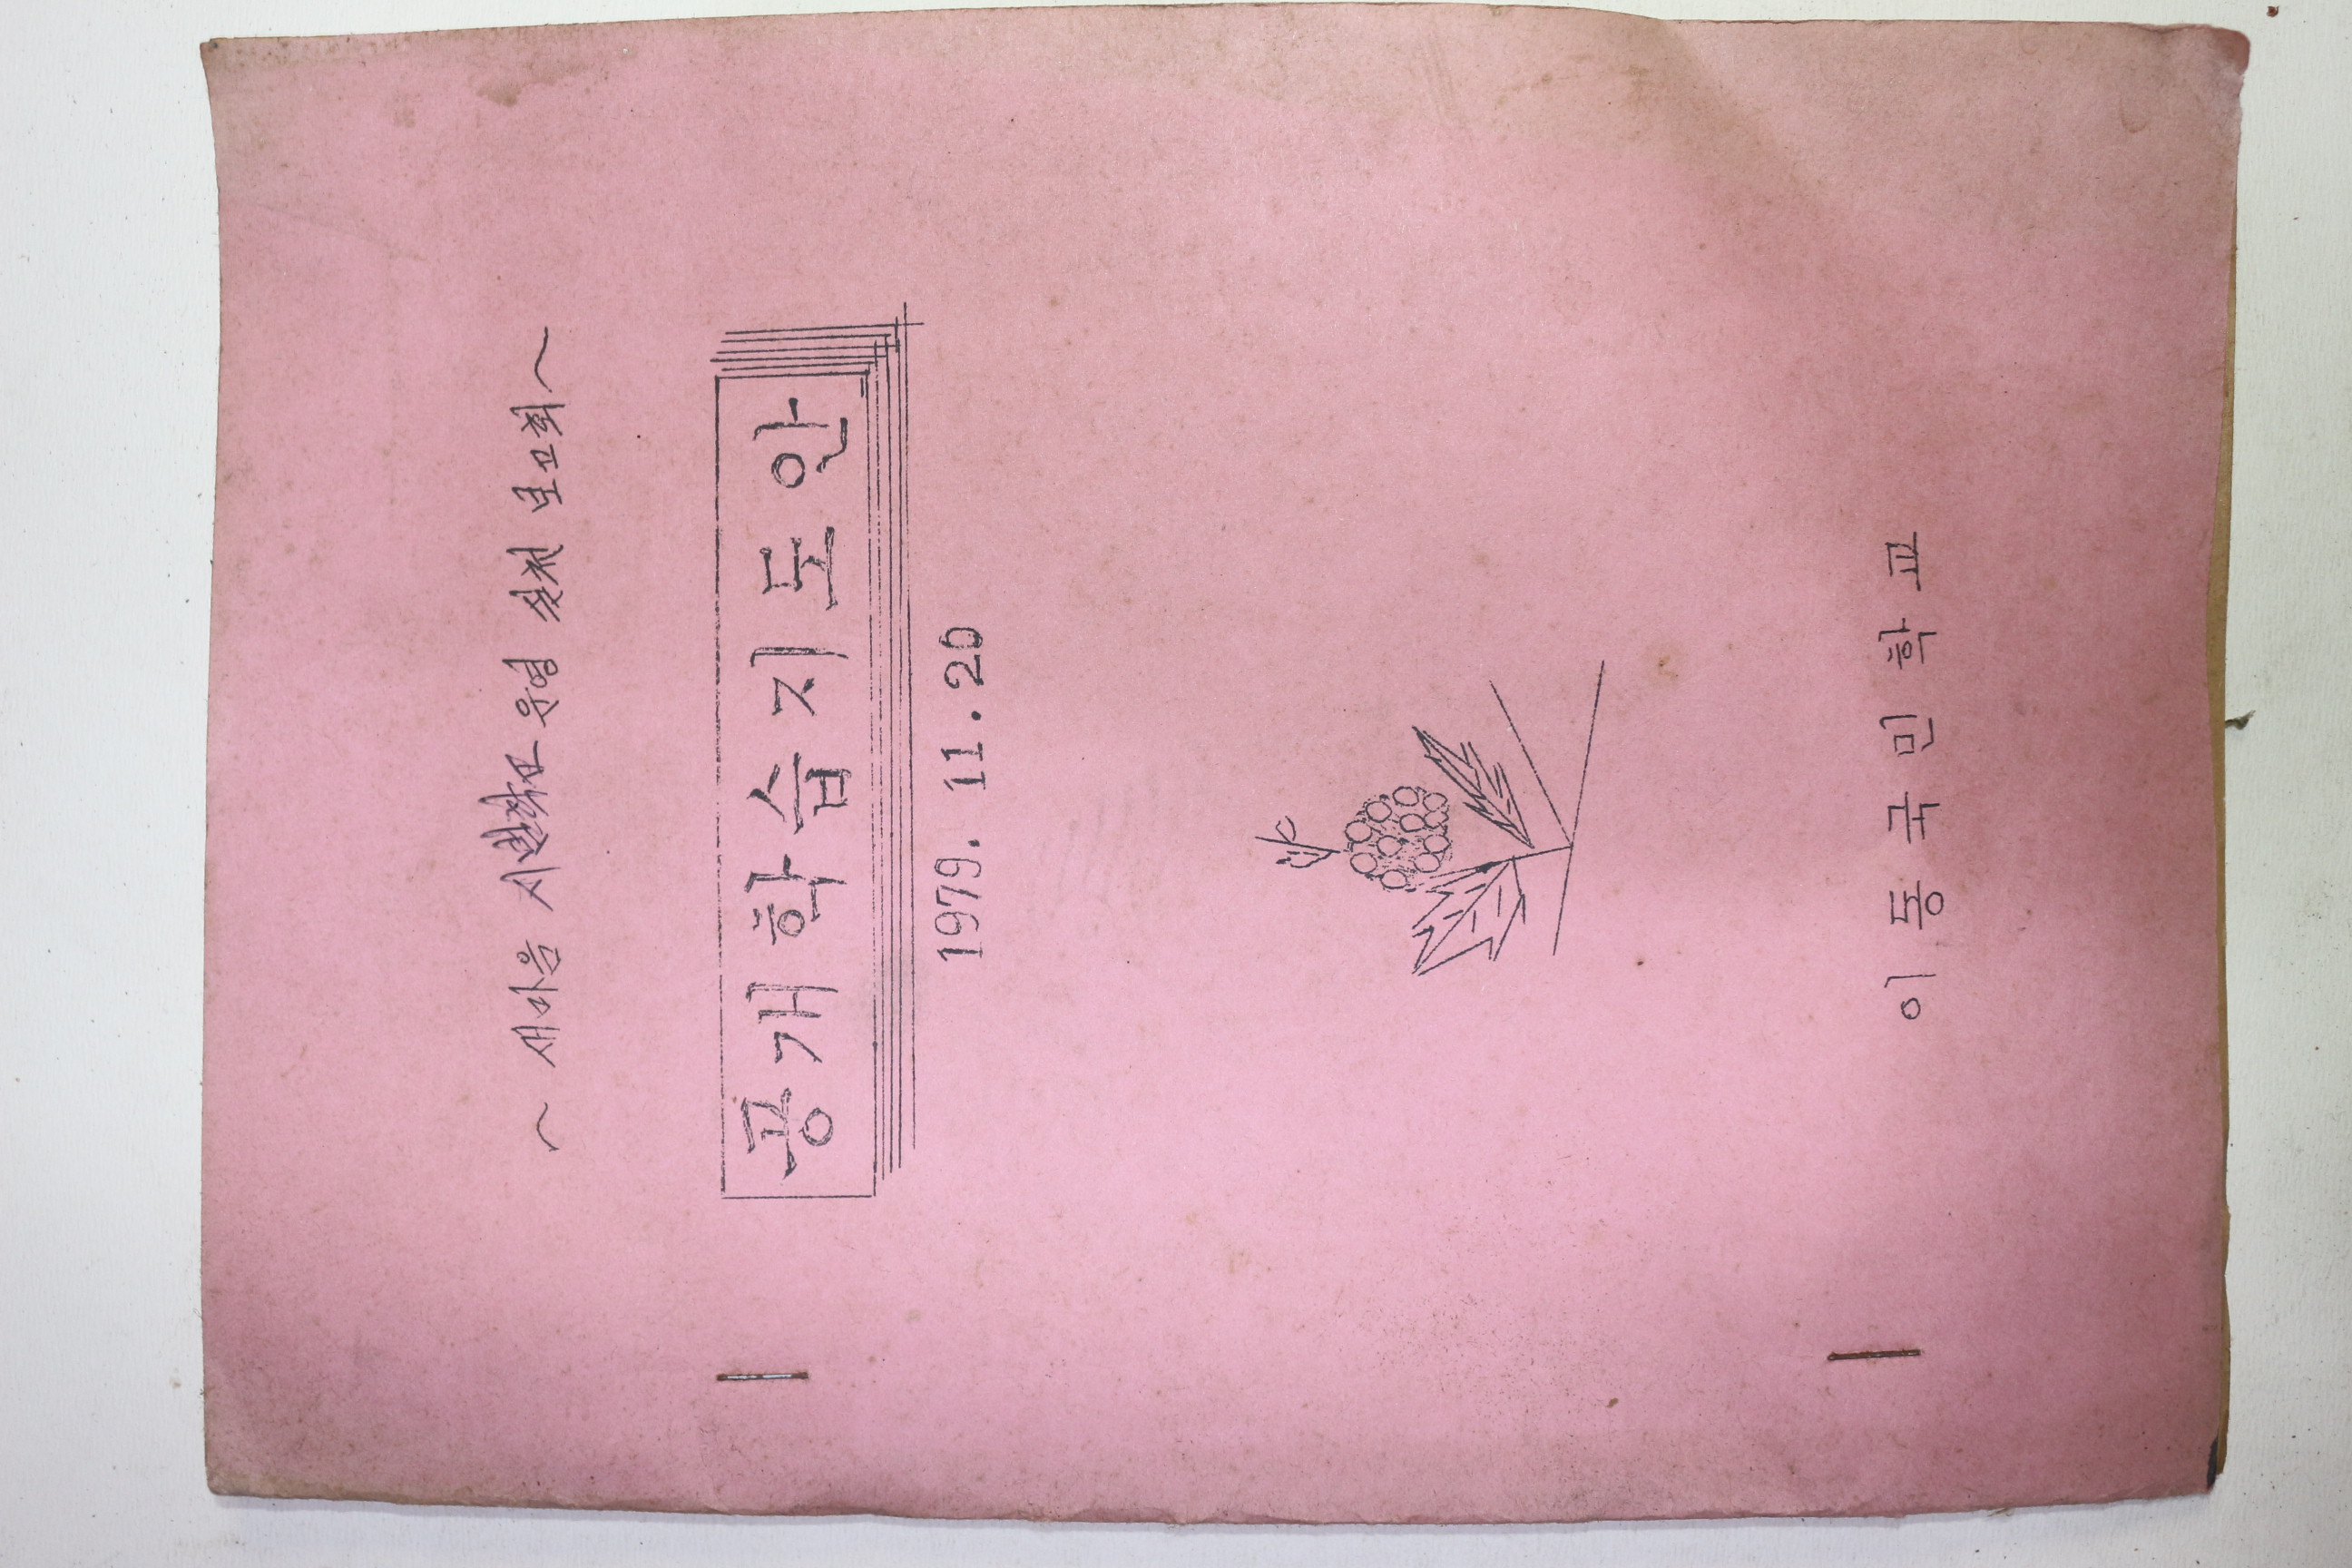 ~ 새마음 시범학교 운영 실천 보고회 ~
공개학습지도안
1979. 11. 20
이동국민학교